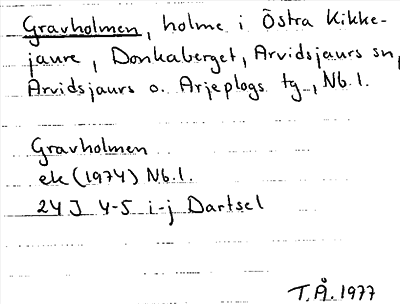 Gravholmen, holme i Östra Kikke-
jaure, Donkaberget, Arvidsjaurs sn,
Arvidsjaurs o. Arjeplogs tg, Nb.l.
Gravholmen
ek (1974) Nb.l.
24J 4-5 i-j Dartsel
T.Å. 1977